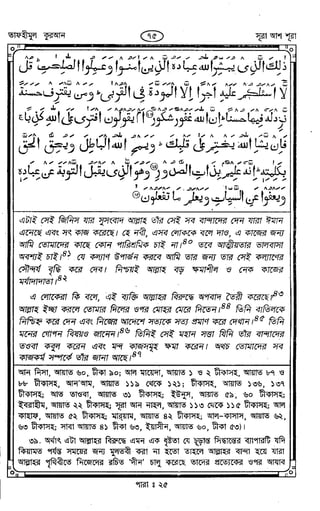 তাফহীমুল কুরআন
৭৫
সূরা আশ শূরা
ذَلِكَ الَّذِي يُبَشِّرُ اللهُ عِبَادَهُ الَّذِينَ آمَنُوا وَعَمِلُوا الصّلِحتِ قُلْ
لَّا أَسْئَلُكُمْ عَلَيْهِ أَجْرًا إِلَّا الْمَوَدَّةَ فِي الْقُرْبَى وَمَنْ يَقْتَرِفْ حَسَنَةً
نَّزِدْ لَهُ فِيهَا حُسْنًا إِنَّ اللهَ غَفُورٌ شَكُورٌ أَمْ يَقُولُونَ افْتَرَى عَلَى اللهِ كَذِبًا
فَإِنْ يَّشَإِ اللهُ يَخْتِمْ عَلَى قَلْبِكَ وَيَمْحُ اللهُ الْبَاطِلَ وَيُحِقُّ الْحَقَّ
بِكَلِمتِهِ إِنَّهُ عَلِيمٌ بِذَاتِ الصُّدُورِ وَهُوَ الَّذِي يَقْبَلُ التَّوْبَةَ عَنْ عِبَادِهِ
وَيَعْفُوا عَنِ السَّيِّاتِ وَيَعْلَمُ مَا تَفْعَلُونَ
এটাই সেই জিনিস যার সুসংবাদ আল্লাহ তাঁর সেই সব বান্দাদের দেন যারা ঈমান
এনেছে এবং সৎ কাজ করেছে। হে নবী, এসব লোককে বলে দাও, এ কাজের জন্য
আমি তোমাদের কাছে কোন পারিশ্রমিক চাই না।৪০ তবে আত্মীয়তার ভালবাসা
অবশ্যই চাই।৪১ যে কল্যাণ উপার্জন করবে আমি তার জন্য তার সেই কল্যাণের
সৌন্দর্য বৃদ্ধি করে দেব। নিশ্চয়ই আল্লাহ বড় ক্ষমাশীল ও নেক কাজের
মর্যাদাদাতা।৪২
এ লোকেরা কি বলে, এই ব্যক্তি আল্লাহর বিরুদ্ধে অপবাদ তৈরী করেছে।৪৩
আল্লাহ ইচ্ছা করলে তোমার দিলের ওপর মোহর মেরে দিতেন।৪৪ তিনি বাতিলকে
নিশ্চিহ্ন করে দেন এবং নিজের আদেশে সত্যকে সত্য প্রমাণ করে দেখান।৪৫ তিনি
মনের গোপন বিষয়ও জানেন।৪৬ তিনিই সেই মহান সত্তা যিনি তাঁর বান্দাদের
তওবা কবুল করেন এবং মন্দ কাজসমূহ ক্ষমা করেন। অথচ তোমাদের সব
কাজকর্ম সম্পর্কে তাঁর জানা আছে।৪৭
আন নিসা, আয়াত ৬০, টীকা ৯০; আল মায়েদা, আয়াত ১ ও ২ টীকাসহ; আয়াত ৮৭ ও
৮৮ টীকাসহ, আন'আম, আয়াত ১১৯ থেকে ১২১; টীকাসহ, আয়াত ১৩৬, ১৩৭
টীকাসহ; আত তাওবা, আয়াত ৩১ টীকাসহ; ইউনুস, আয়াত ৫৯, ৬০ টীকাসহ;
ইবরাহীম, আয়াত ২২ টীকাসহ; সূরা আন নাহল, আয়াত ১১৩ থেকে ১১৫ টীকাসহ; আল
কাহাফ, আয়াত ৫২ টীকাসহ; মারয়াম, আয়াত ৪২ টীকাসহ; আল-কাসাস, আয়াত ৬২,
৬৩ টীকাসহ; সাবা আয়াত ৪১ টীকা ৬৩, ইয়াসীন, আয়াত ৬০, টীকা ৫৩)।
৩৯. অর্থাৎ এটা আল্লাহর বিরুদ্ধে এমন এক ধৃষ্টতা যে চূড়ান্ত সিদ্ধান্তের ব্যাপারটি যদি
কিয়ামত পর্যন্ত সময়ের জন্য মুলতবী করা না হতো তাহলে আল্লাহর বান্দা হয়ে যারা
আল্লাহর পৃথিবীতে নিজেদের রচিত 'দীন' চালু করেছে তাদের প্রত্যেকের ওপর আযাব
পারা : ২৫